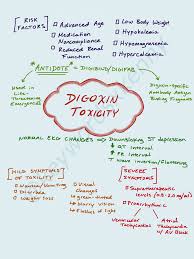 RISK
FACTORS
Advanced Age
Medication
Noncompliance
Reduced Renal
Function
Low Body Weight
Hypokalemia
Hypomagnesemia
Hypercalcemia
ANTIDOTE = DIGIBIND/DIGIFAB
Used in
Life-
Threatening
Emergencies
Digoxin-Specific
Antibody Antigen
Binding Fragments
DIGOXIN
TOXICITY
NORMAL EKG CHANGES ⇒ Downsloping ST depression
↓ QT Interval
↑ PR Interval
T Wave inversion/flattening
MILD SYMPTOMS
OF TOXICITY
Nausea/Vomiting
Diarrhea
Weight loss
Visual
Changes
green-tinted
blurry vision
Flashes of light
Halos
SEVERE
SYMPTOMS
Supratherapeutic
levels (>2.0 ng/ml)
Proarrhythmic
Ventricular
Tachycardia
Atrial
Tachycardia
w/ AV Block